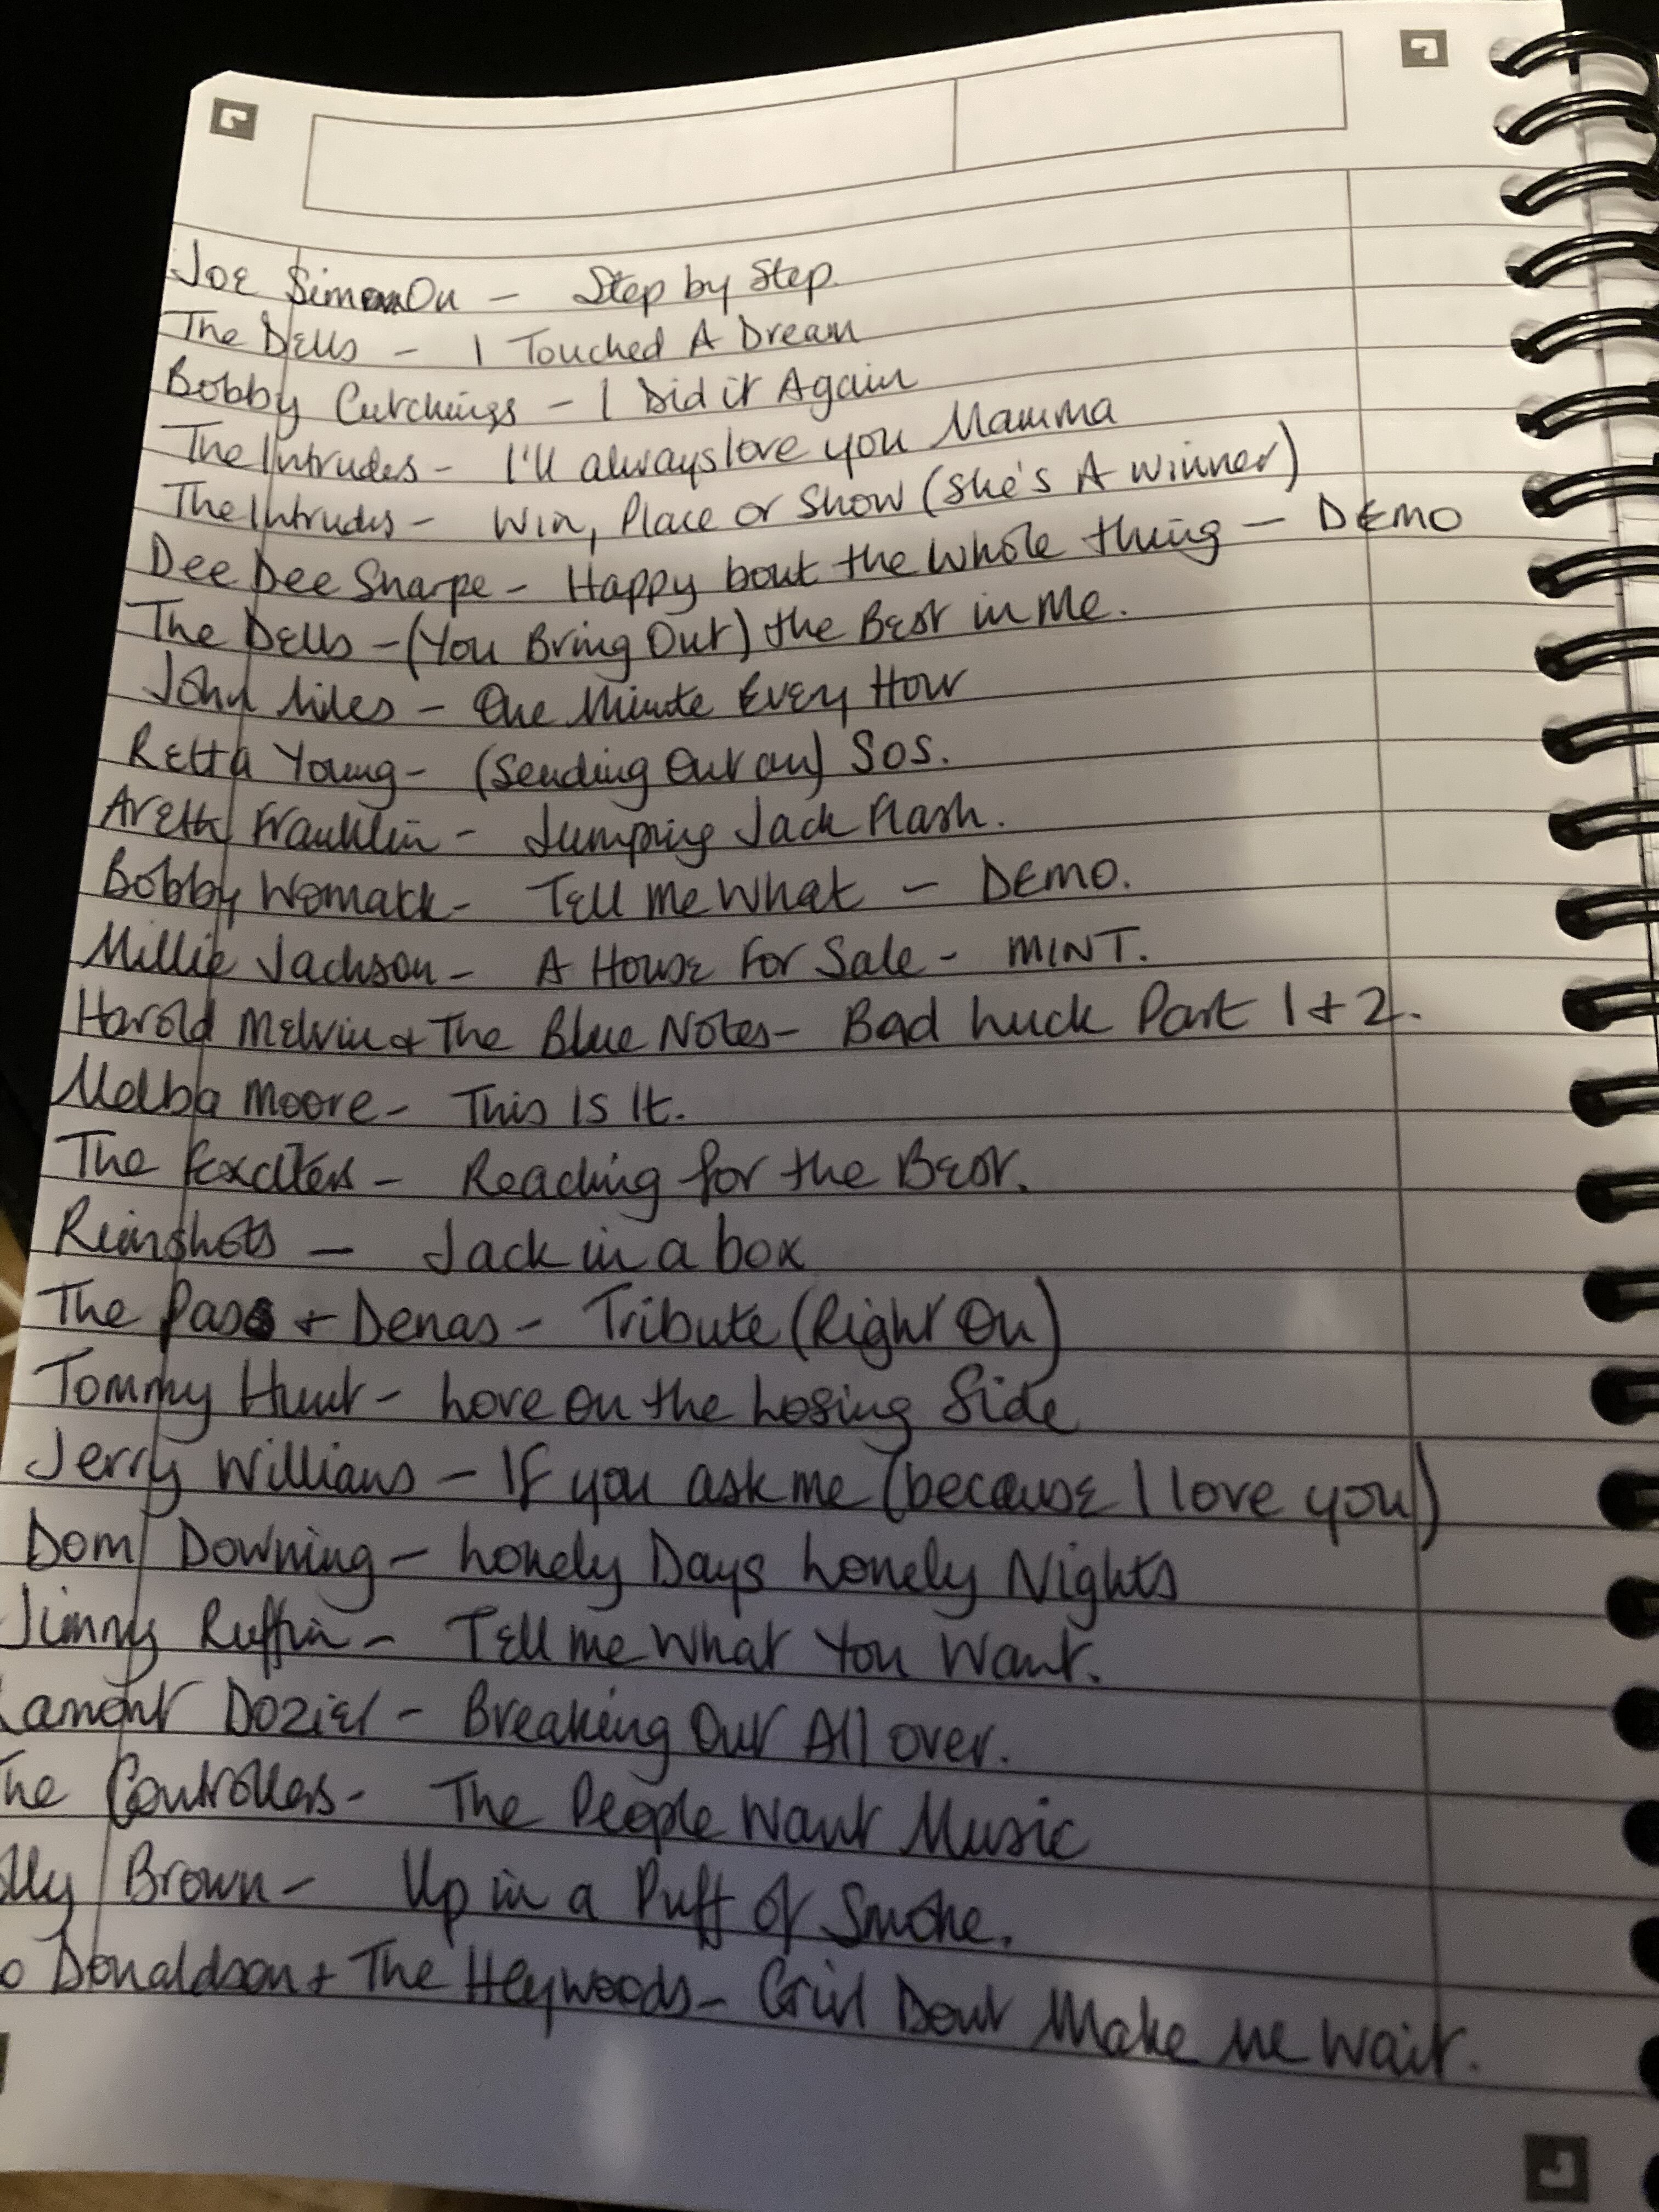 Joe Simon - Step by Step.
The Dells - I Touched A Dream
Bobby Cutchings - I Did it Again
The Intrudes - I'll always love you Mamma
The Intrudes - Win, Place or Show (She's A Winner)
Dee Dee Sharpe - Happy bout the Whole thing - DEMO
The Dells - (You Bring Out) the Best in Me.
John Miles - One Minute Every Hour
Retta Young - (Sending Out an) SOS.
Areth Franklin - Jumping Jack Flash.
Bobby Womack - Tell me What - DEMO.
Millie Jackson - A House For Sale - MINT.
Harold Melvin + The Blue Notes - Bad Luck Part 1 + 2.
Melba Moore - This Is It.
The Exciters - Reaching for the Best.
Rimshots - Jack in a box
The Pas + Denas - Tribute (Right On)
Tommy Hunt - Love on the Losing Side
Jerry Williams - If you ask me (because I love you)
Dom Downing - Lonely Days Lonely Nights
Jimmy Ruffin - Tell me What You Want.
Lamont Dozier - Breaking Out All over.
The Controllers - The People Want Music
olly Brown - Up in a Puff of Smoke.
o Donaldson + The Heywoods - Girl Dont Make Me Wait.